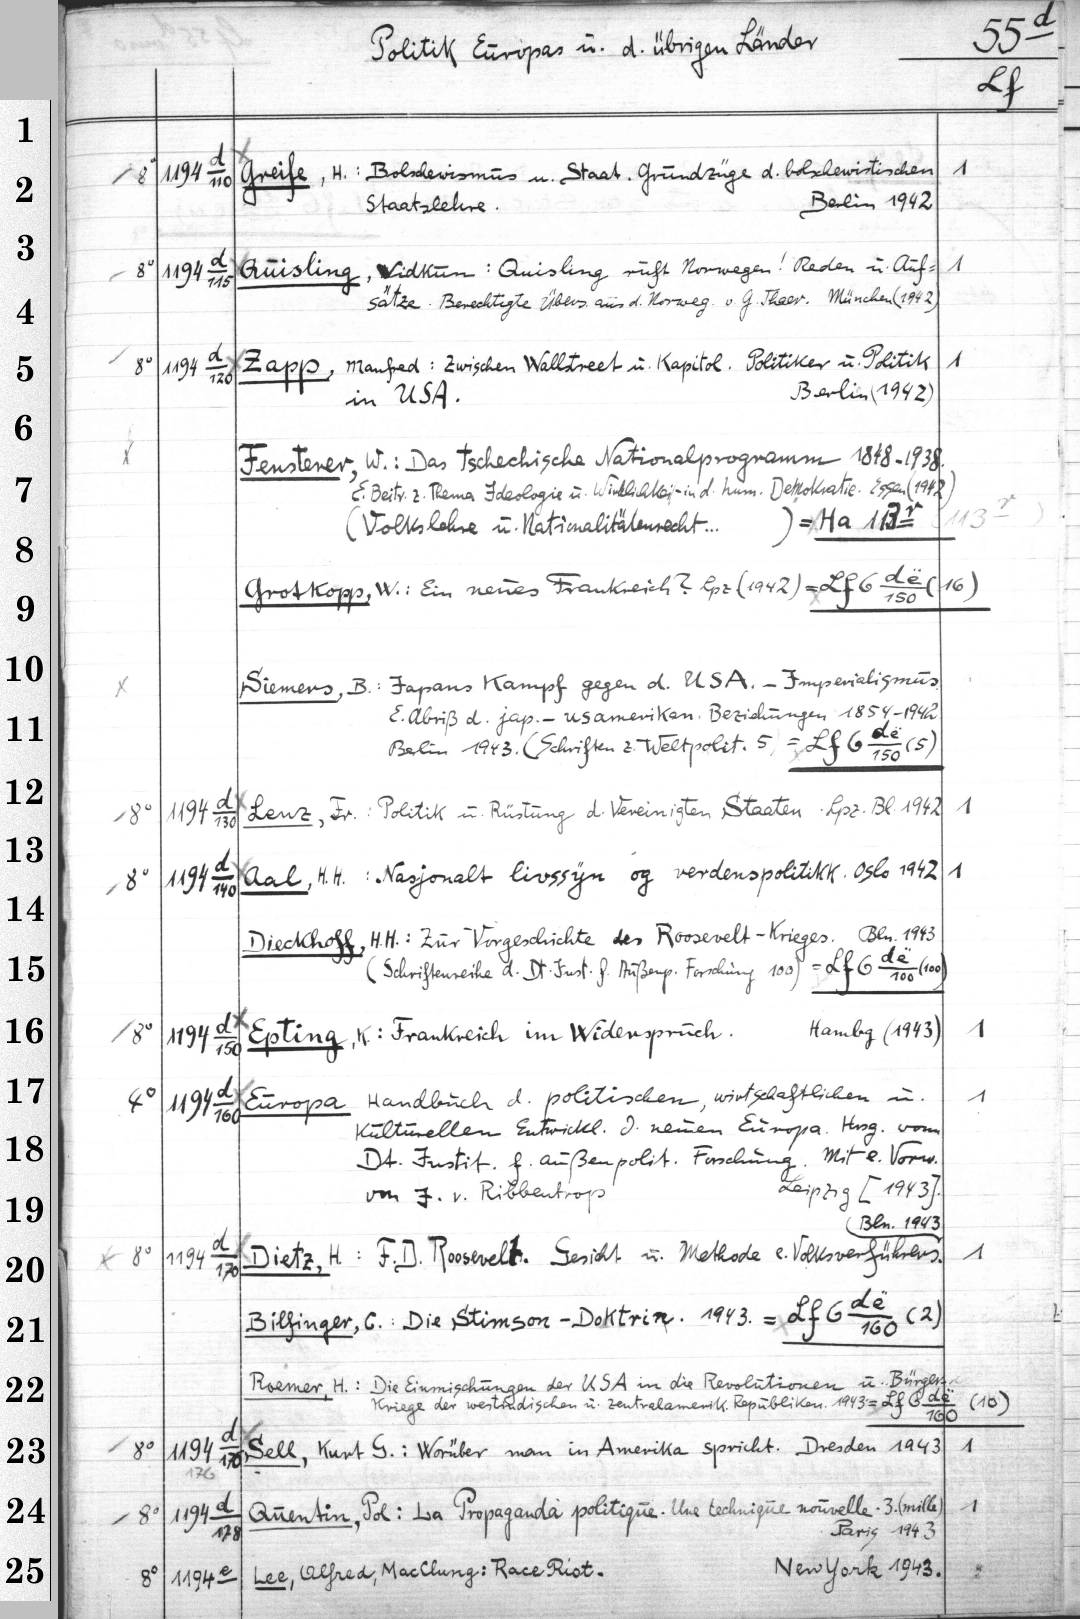 Politik Europas u. d. übrigen Länder
55 d
Lf
1
8° 1194 d/110 Greife, H.: Bolschewismus u. Staat. Grundzüge d. bolschewistischen 1
2
Staatslehre. Berlin 1942
3
8° 1194 d/115 Quisling, Vidkun: Quisling ruft Norwegen! Reden u. Auf= 1
4
sätze. Berechtigte Übers. aus d. Norweg. v. G. Thaer. München (1942)
5
8° 1194 d/120 Zapp, Manfred: Zwischen Wallstreet u. Kapitol. Politiker u. Politik 1
in USA. Berlin (1942)
6
x Fensterer, W.: Das tschechische Nationalprogramm 1848-1938.
7
E. Beitr. z. Thema Ideologie u. Wirklichkei- in d. hum. Demokratie. Essen (1942)
(Volkslehre u. Nationalitätenrecht... ) = Ha 113 r (113 r )
8
Grotkopp, W.: Ein neues Frankreich? Lpz (1942) = Lf 6 dë/150 (16)
9
10
x Siemers, B.: Japans Kampf gegen d. USA. - Imperialismus
11
E. Abriß d. jap.- usamerikan. Beziehungen 1854-1942
Berlin 1943. (Schriften z. Weltpolit. 5) = Lf 6 dë/150 (5)
12
8° 1194 d/130 Lenz, Fr.: Politik u. Rüstung d. Vereinigten Staaten. Lpz. Bl. 1942 1
13
8° 1194 d/140 Aal, H.H.: Nasjonalt livssyn og verdenspolitikk. Oslo 1942 1
14
Dieckhoff, H.H.: Zur Vorgeschichte des Roosevelt-Krieges. Bln. 1943
15
(Schriftenreihe d. Dt. Inst. f. Außenp. Forschung 100) = Lf 6 dë/100 (100)
16
8° 1194 d/150 Epting, K: Frankreich im Widerspruch. Hambg (1943) 1
17
4° 1194 d/160 Europa Handbuch d. politischen, wirtschaftlichen u. 1
kulturellen Entwickl. d. neuen Europa. Hrsg. vom
18
Dt. Instit. f. außenpolit. Forschung. Mit e. Vorw.
19
von J. v. Ribbentrop Leipzig [1943].
(Bln. 1943
20
x 8° 1194 d/170 Dietz, H: F.D. Roosevelt. Gesicht u. Methode e. Volksverführers. 1
21
Bilfinger, C.: Die Stimson-Doktrin. 1943. = Lf 6 dë/160 (2)
22
Roemer, H.: Die Einmischungen der USA in die Revolutionen u. Bürger-
Kriege der westindischen u. zentralamerik. Republiken. 1943 = Lf 6 dë/160 (10)
23
8° 1194 d/176 Sell, Kurt G.: Worüber man in Amerika spricht. Dresden 1943 1
176
24
8° 1194 d/178 Quentin, Pol: La Propaganda politique. Une technique nouvelle. 3. (mille) 1
Paris 1943
25
8° 1194 e Lee, Alfred, MacClung: Race Riot. New York 1943.